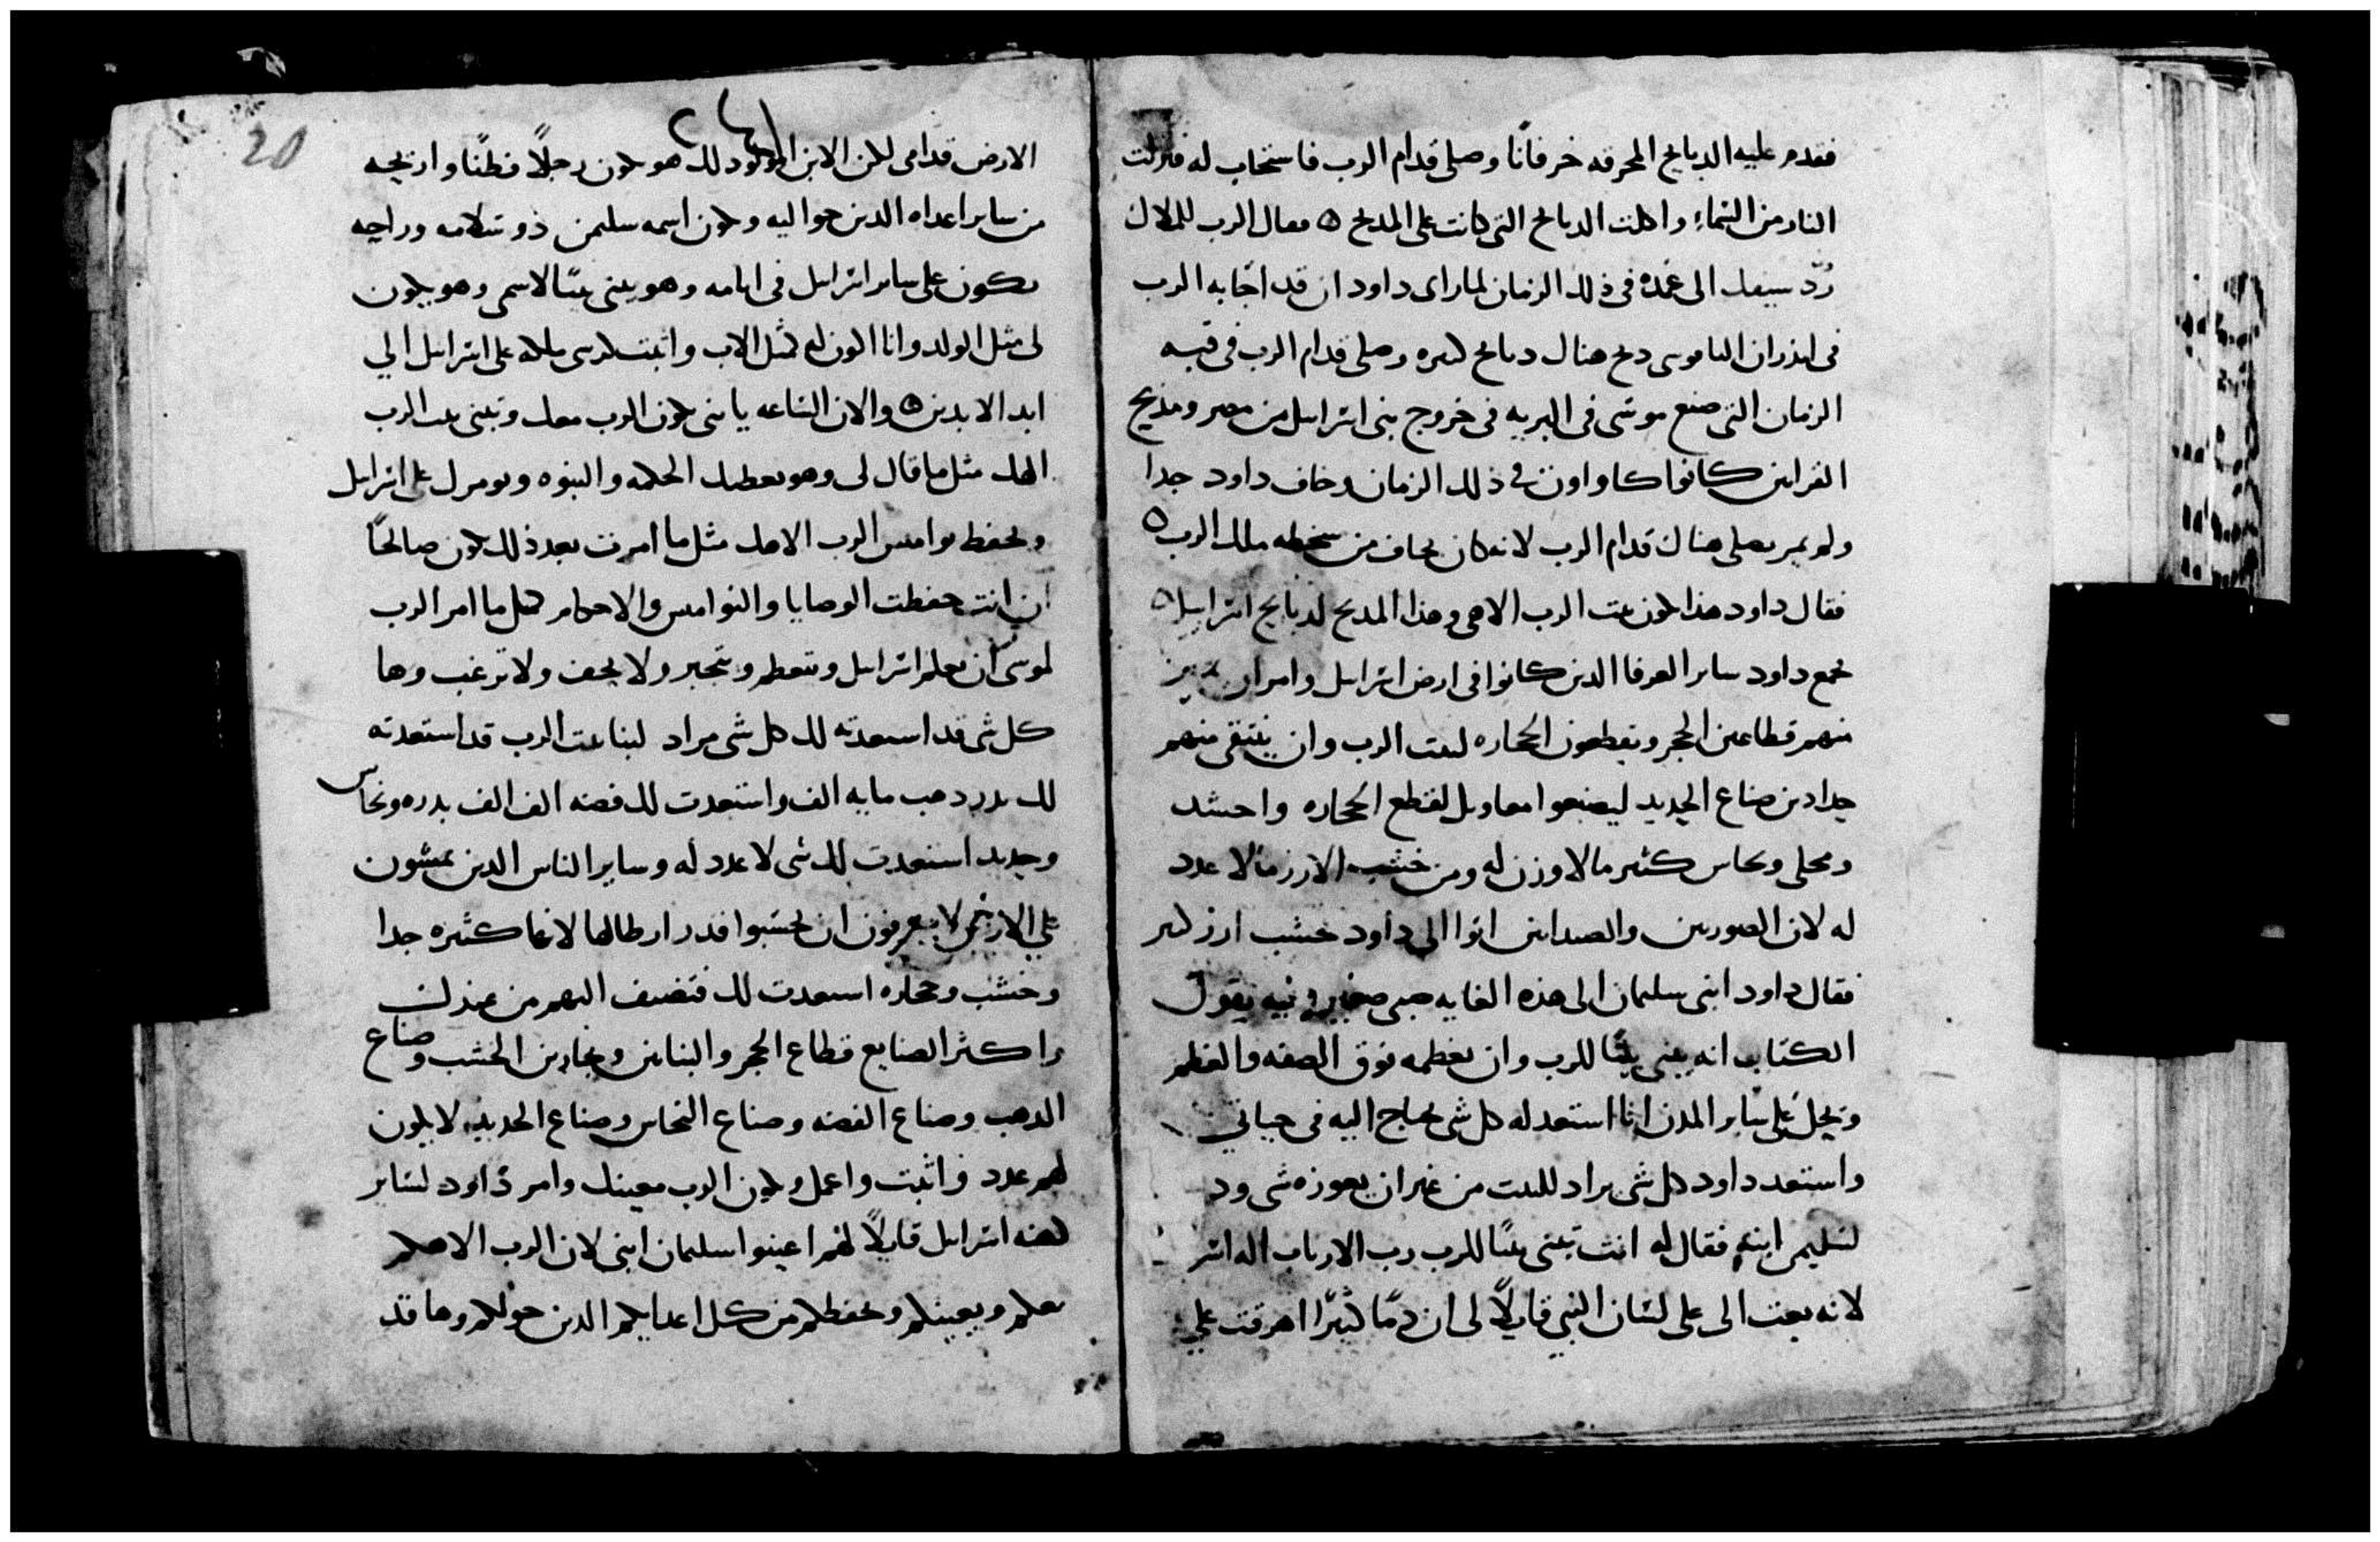 فقدم عليه الدبايح المحرقه خرفانا وصلى قدام الرب فاستجاب له فنزلت
النار من السماء واكلت الدبايح التى كانت على المدبح ه فقال الرب للملاك
رُدّ سيفك الى غمده فى ذلك الزمان لما راى داود ان قد اجابه الرب
فى اندران اليابوسى دبح هناك دبايح كثيره وصلى قدام الرب فى قبه
الزمان التى صنع موسى فى البريه فى خروج بنى اسرايل من مصر ومذبح
القرابين كانوا كاواون فى ذلك الزمان وخاف داود جدا
ولم يمر يصلى هناك قدام الرب لانه كان يخاف من سخطه ملاك الرب ه
فقال داود هذا يكون بيت الرب الاهى وهذا المدبح لدبايح اسراييل ه
فجمع داود ساير العرفا الدين كانوا فى ارض اسرايل وامر ان
منهم قطاعين الحجر ويقطعون الحجاره لبيت الرب وان ينتقى منهم
حدادين صناع الحديد ليصنعوا معاويل لقطع الحجاره واحشد
ومحلى ونحاس كثير ما لا وزن له ومن خشب الارز ما لا عدد
له لان الصوريين والصيدانيين اتوا الى داود خشب ارز كثير
فقال داود ابنى سليمان الى هذه الغايه صبى صغير وفيه يقول
الكتاب انه يبنى بيتا للرب وان يعظمه فوق الصفه والعظم
ويجل على ساير المدن انا استعد له كل شى يحتاج اليه فى حياتى
واستعد داود كل شى يراد للبيت من غير ان يعوزه شى ود
لسليمن ابنه فقال له انت تبنى بيتا للرب رب الارباب اله اسر
لانه بعت الى على لسان النبى قايلاً لى ان دمًا كثيرًا اهرقت على
20
الارض قدامى لكن الابن المولود لك هو يكون رجلاً فطنًا واريحه
من ساير اعداه الدين حواليه ويكون اسمه سليمن ذو سلامه وراحه
يكون على ساير اسرايل فى ايامه وهو يبنى بيتًا لاسمى وهو يكون
لى مثل الولد وانا اكون له مثل الاب واتبت كرسى ملكه على اسرايل الي
ابد الابدين ه والان الساعه يا بنى يكون الرب معك وتبنى بيت الرب
الهك مثل ما قال لى وهو يعطيك الحكمه والنبوه ويومرك على اسرايل
وتحفظ نواميس الرب الاهك مثل ما امرت بعد ذلك يكون صالحًا
ان انت حفظت الوصايا والنواميس والاحكام كل ما امر الرب
لموسى ان يعلم اسرايل وتتعظم وتتجبر ولا تخف ولا ترعب وها
كل شى قد استعدته لك كل شى مراد لبنا بيت الرب قد استعدته
لك بدر دهب مايه الف واستعدت لك فضه الف الف بدره ونحاس
وحديد استعديت لك شى لا عدد له وساير الناس الدين يمشون
علي الارض لا يعرفون ان يحسبوا قدر ارطالها لانها كثيره جدا
وخشب وحجاره استعدت لك فتضيف اليهم من عندك
واكثر الصنايع قطاع الحجر والبنايين ونجارين الخشب وصناع
الدهب وصناع الفضه وصناع النحاس وصناع الحديد لا يكون
لهم عدد فاثبت واعمل ويكون الرب معينك وامر داود لساير
كهنه اسرايل قايلاً لهم اعينوا سليمان ابنى لان الرب الاهكم
معكم ويعينكم ويحفظكم من كل اعدايكم الدين حولكم وها قد